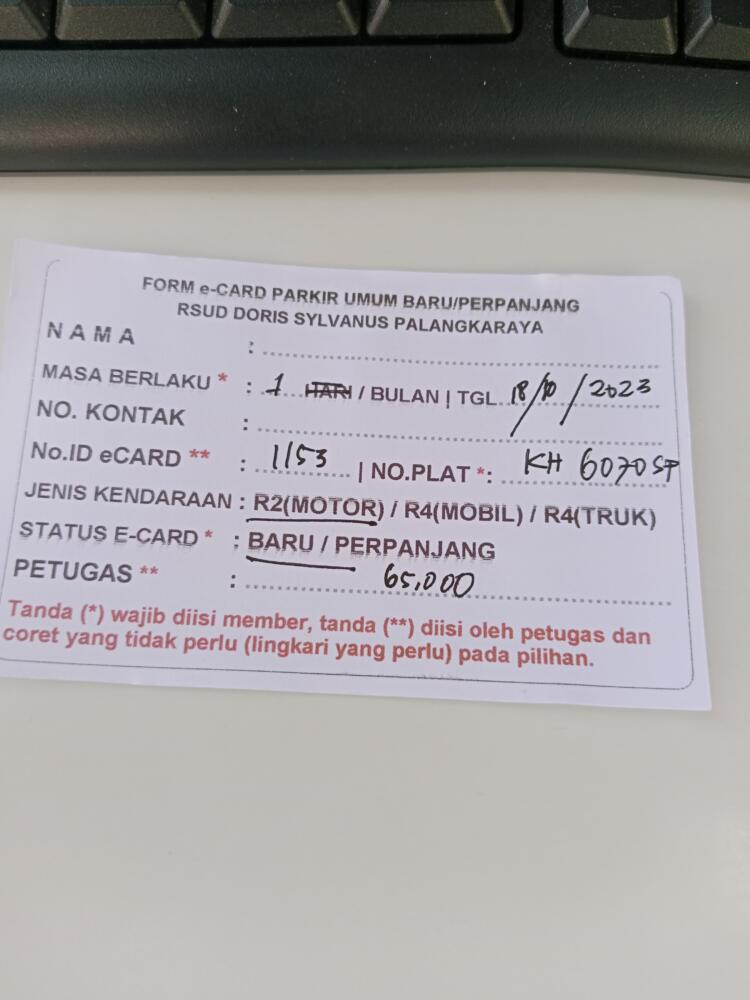 FORM e-CARD PARKIR UMUM BARU/PERPANJANG
RSUD DORIS SYLVANUS PALANGKARAYA
N A M A :
MASA BERLAKU * : 1 HARI / BULAN | TGL 18/10/2023
NO. KONTAK :
No.ID eCARD ** : 1153 | NO.PLAT *: KH 6070 SP
JENIS KENDARAAN : R2(MOTOR) / R4(MOBIL) / R4(TRUK)
STATUS E-CARD * : BARU / PERPANJANG
PETUGAS ** : 65.000
Tanda (*) wajib diisi member, tanda (**) diisi oleh petugas dan
coret yang tidak perlu (lingkari yang perlu) pada pilihan.